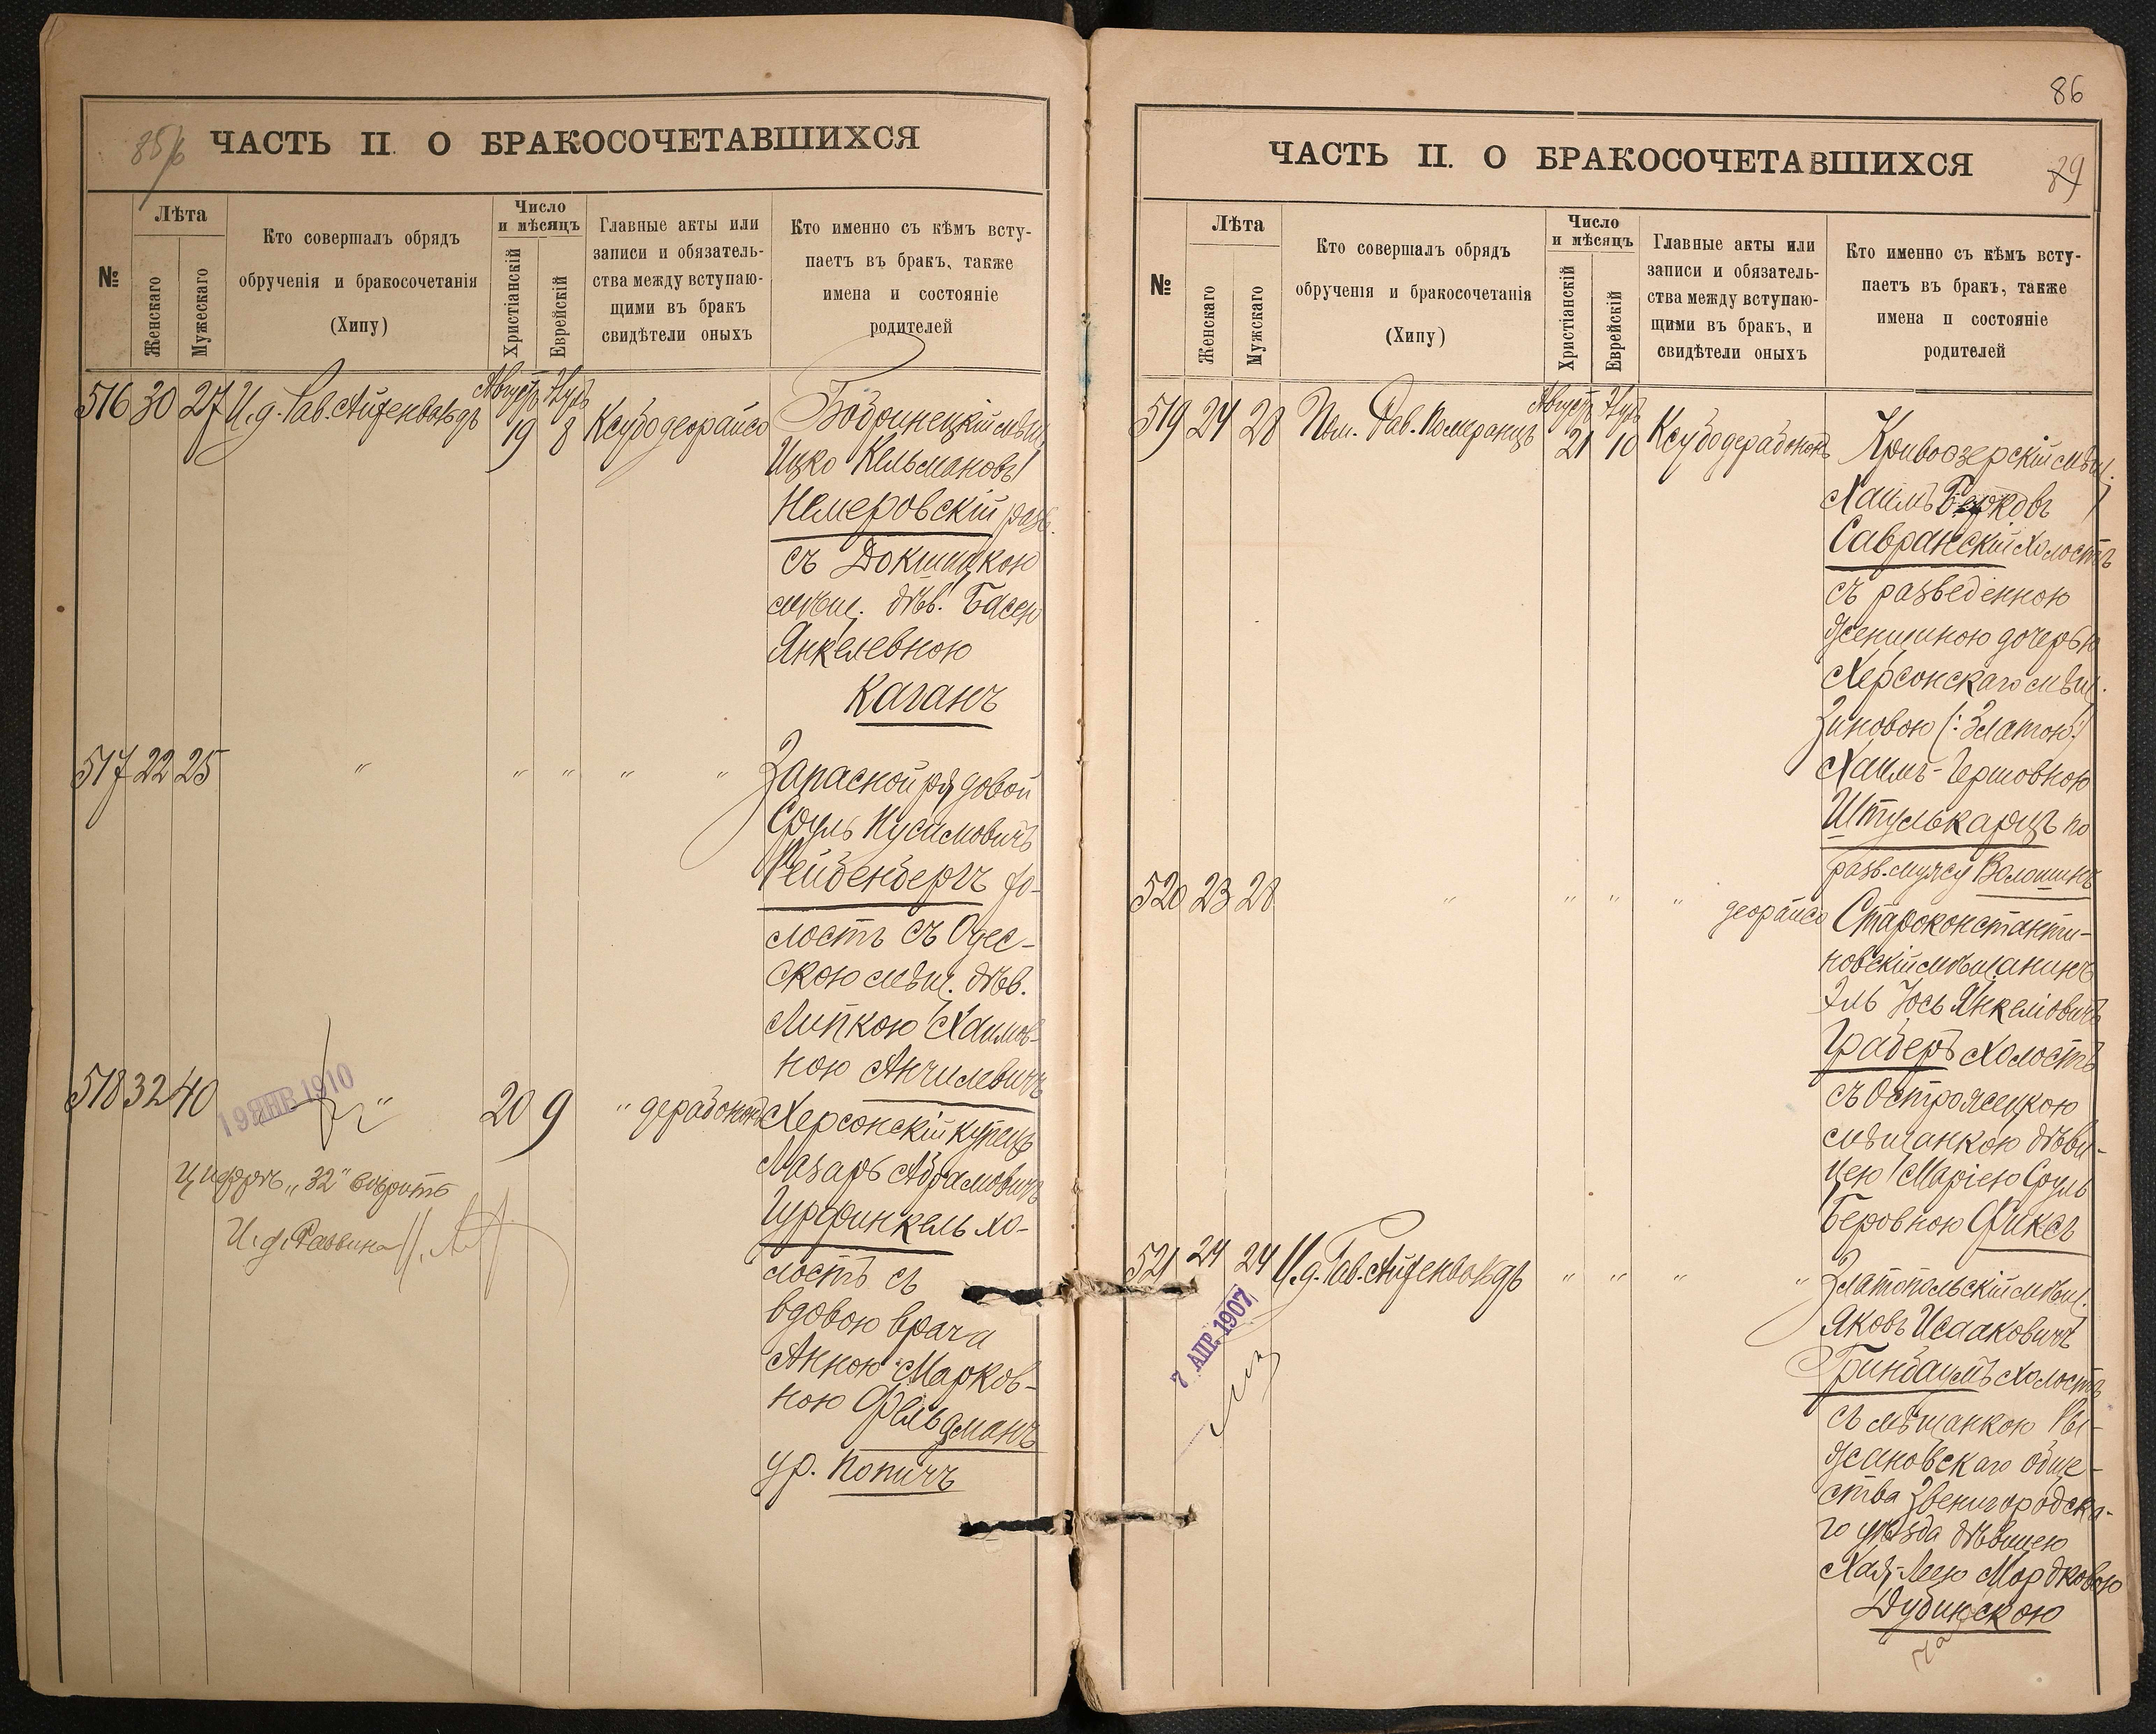 85/6
ЧАСТЬ II. О БРАКОСОЧЕТАВШИХСЯ
№
Лѣта
Женскаго
Мужескаго
Кто совершалъ обрядъ
обрученія и бракосочетанія
(Хипу)
Число
и мѣсяцъ
Христіанскій
Еврейскій
Главные акты или
записи и обязатель-
ства между вступаю-
щими въ бракъ
свидѣтели оныхъ
Кто именно съ кѣмъ всту-
паетъ въ бракъ, также
имена и состояніе
родителей
516 30 27 И.д. Рав. Айзенвальдъ Августъ 19 8
Бобринецкій мѣщ.
Ицко Кельмановъ
Немеровскій разв.
съ Докшицкою
мѣщ. дѣв. Басею
Янкелевною
Каганъ
517 22 25 " " " " "
Запасной рядовой
Сруль Нусимовичъ
Рейденбергъ хо-
лостъ съ Одес-
скою мѣщ. дѣв.
Липкою Хаимов-
ною Анчилевичъ
518 32 40 " 20 9 "
19 ЯНВ 1910
Цифрѣ „32" вѣрить
И. д. Раввина
Херсонскій купецъ
Лазарь Абрамовичъ
Цурфинкель хо-
лостъ съ
вдовою врача
Анною Марков-
ною Фельдманъ
ур. Попичъ
86
89
ЧАСТЬ II. О БРАКОСОЧЕТАВШИХСЯ
№
Лѣта
Женскаго
Мужскаго
Кто совершалъ обрядъ
обрученія и бракосочетанія
(Хипу)
Число
и мѣсяцъ
Христіанскій
Еврейскій
Главные акты или
записи и обязатель-
ства между вступаю-
щими въ бракъ, и
свидѣтели оныхъ
Кто именно съ кѣмъ всту-
паетъ въ бракъ, также
имена и состояніе
родителей
519 24 28 Пом. Рав. Померанцъ Августъ 21 10
Кривоозерскій мѣщ.
Хаимъ Берковъ
Савранскій холостъ
съ разведенною
женщиною дочерью
Херсонскаго мѣщ.
Зиновою (:Златою:)
Хаимъ-Гершовною
Штулькарцъ по
разв. мужу Волошинъ
520 23 28 " " " "
Староконстанти-
новскій мѣщанинъ
Эль Іось Янкелiовичъ
Граберъ холостъ
съ Острожецкою
мѣщанкою дѣви-
цею Маріею Сруль
Беровною Фиксъ
521 24 24 И.д. Рав. Айзенвальдъ " " " "
7 АПР. 1907
Златопольскій мѣщ.
Яковъ Исааковичъ
Гринбаумъ холостъ
съ мѣщанкою Ры-
жановскаго обще-
ства Звенигородска-
го уѣзда дѣвицею
Хая-Леею Мордковою
Дубинскою